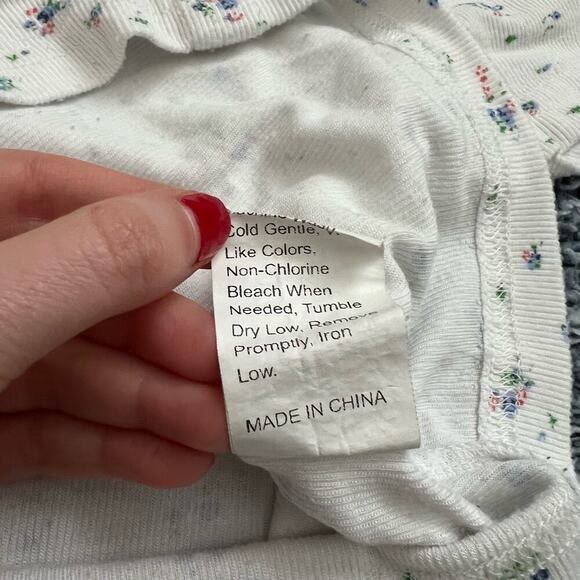 Cold Gentle,
Like Colors,
Non-Chlorine
Bleach When
Needed, Tumble
Dry Low, Remove
Promptly, Iron
Low.
MADE IN CHINA